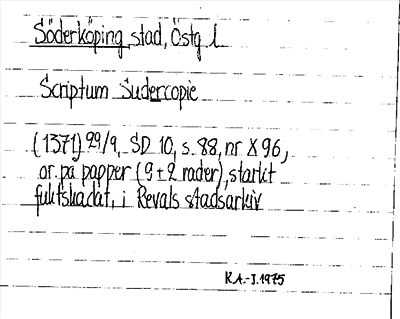 Söderköping stad, Östg l
Scriptum Sudercopie
(1371) 29/9, SD 10, s. 88, nr X 96,
or. på papper (9+2 rader), starkt
fuktskadat, i Revals stadsarkiv
R.A.-J. 1975